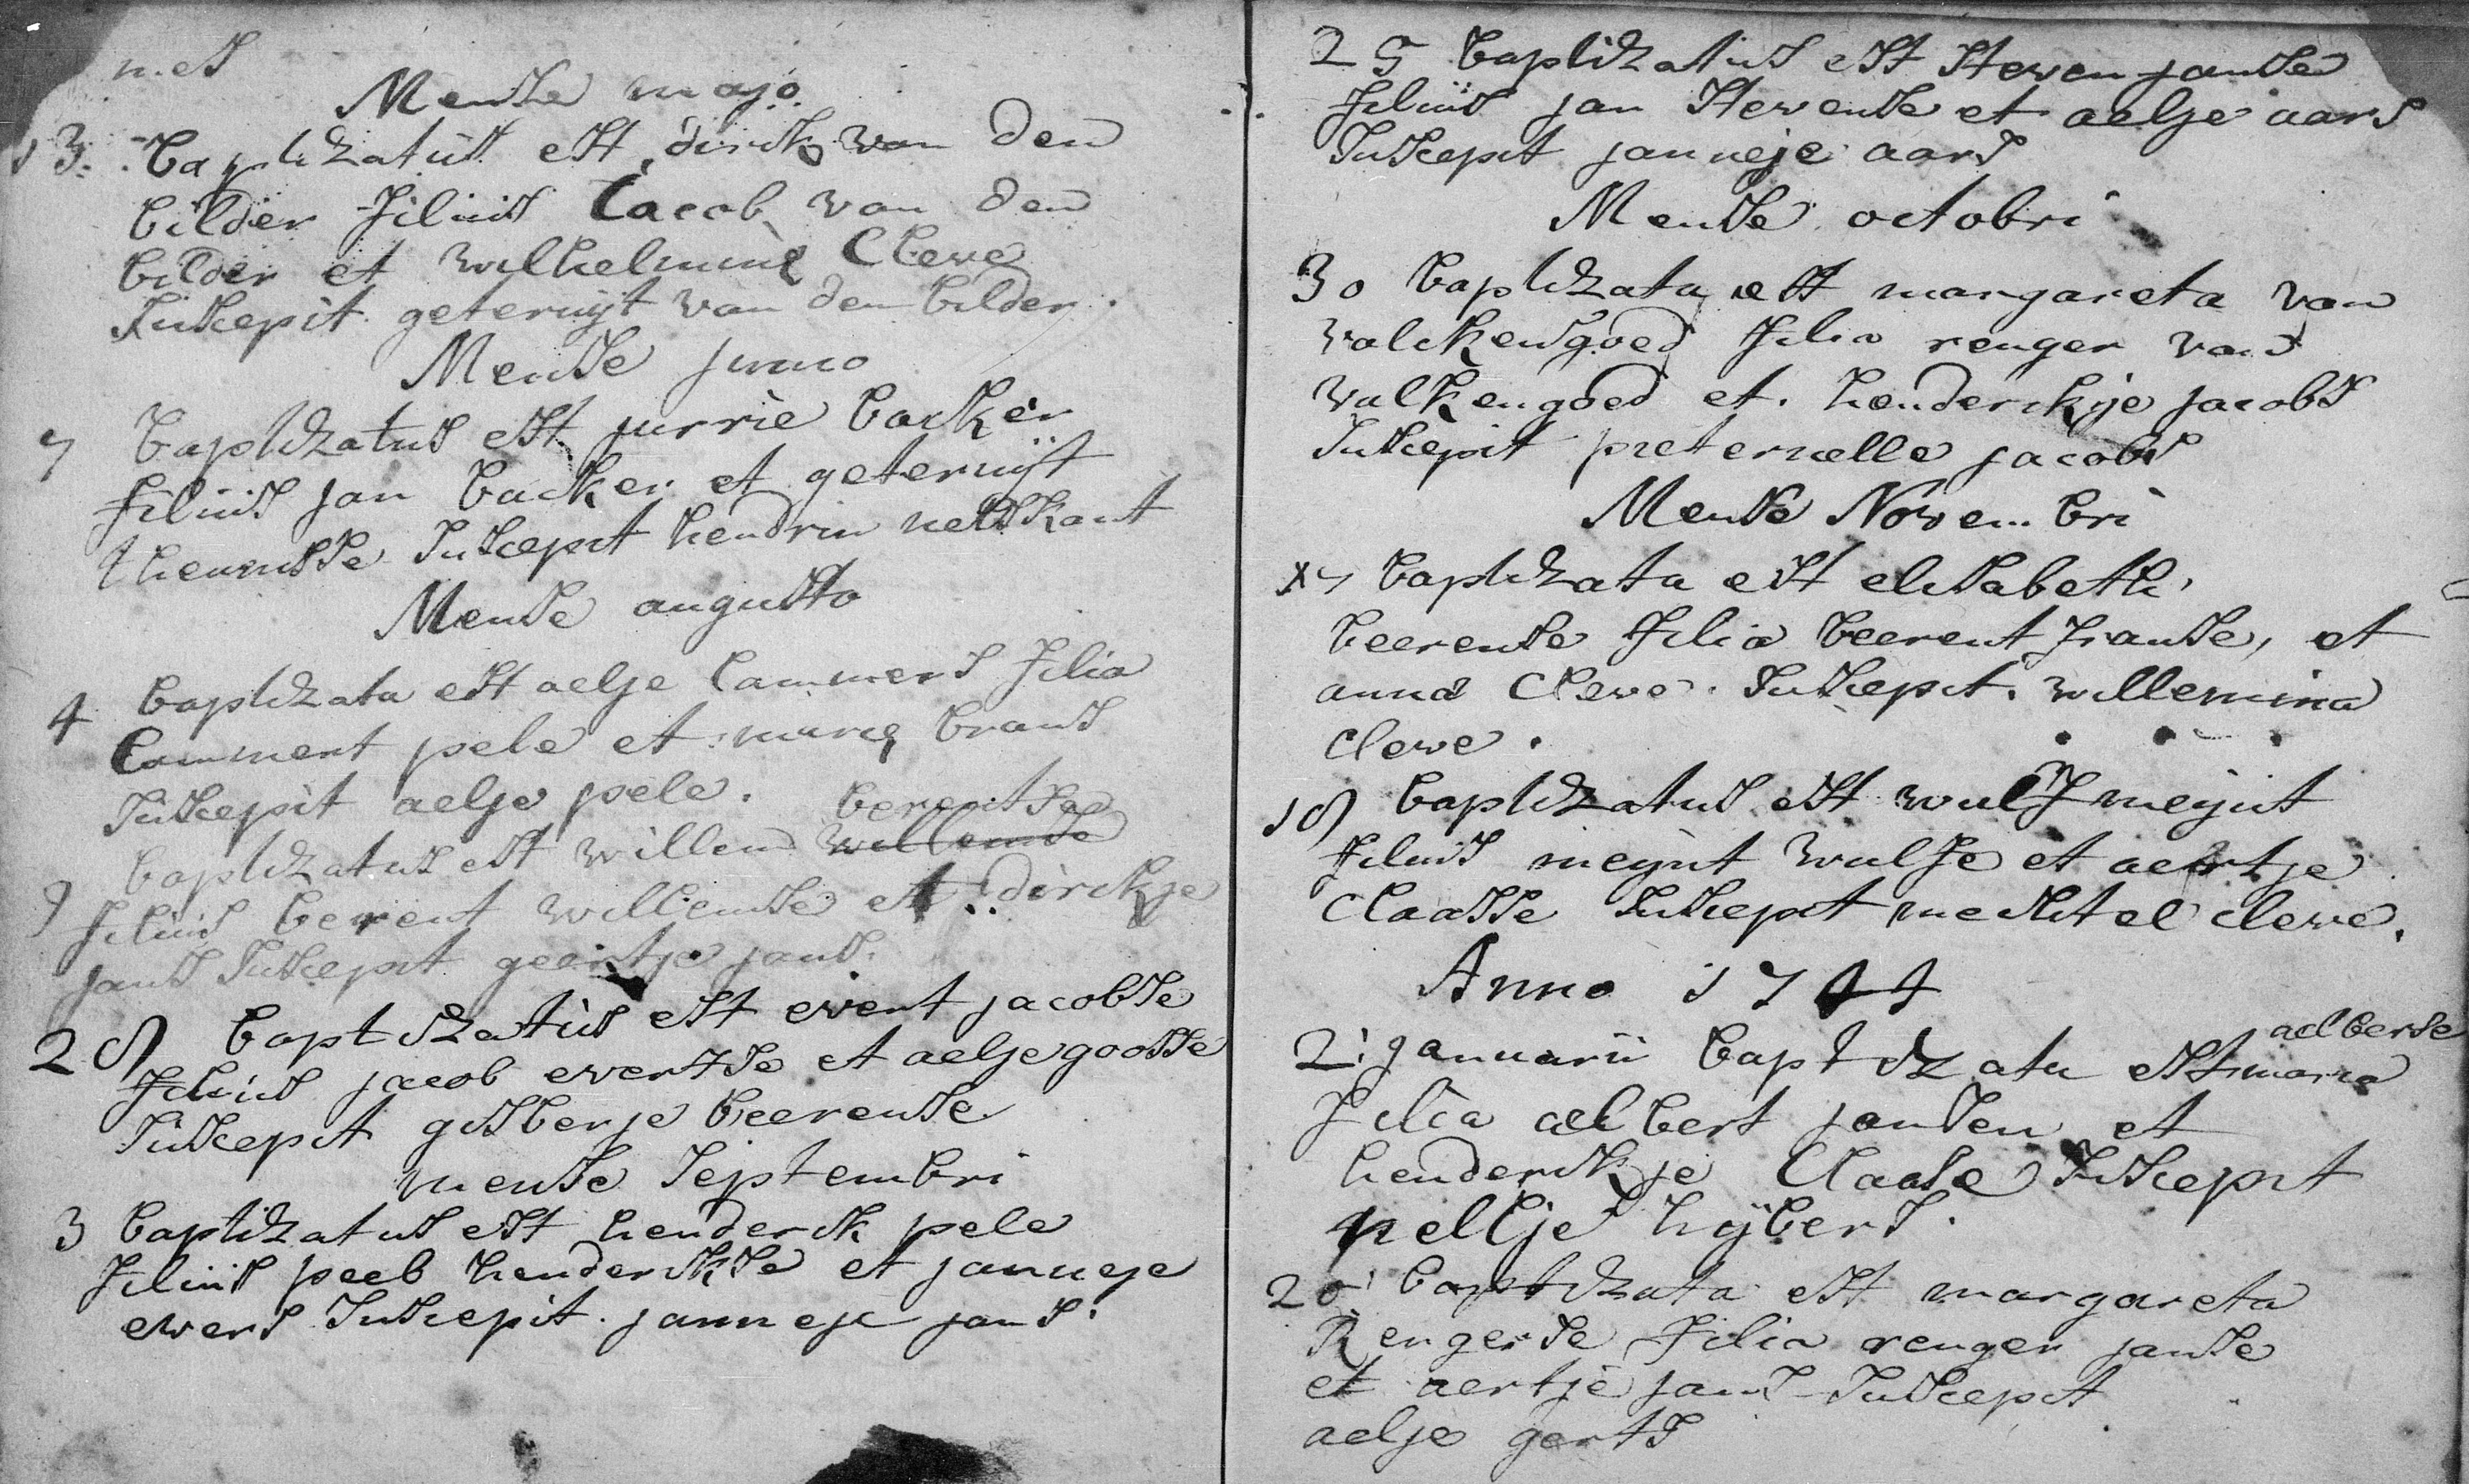 Mense majo
13. Baptizatus est dirck van den
bilder filius Jacob van den
bilder et wilhelmine Cleve
Suscepit geteruijt van den bilder.
Mense junio
7 baptizatus est jurrie backer
filius jan backer et geteruijt
theunisse Suscepit hendrin
Mense augusto
4 baptizata est aelje lammers filia
lammert pele et marij brants
Suscepit aelje pele.
berentse
9 baptizatus est willem willemse
filius berent willemse et dirckje
jans Suscepit geertje jans.
28 baptizatus est evert jacobse
filius jacob evertse et aelje goosse
Suscepit gisberje beerense
mense septembri
3 baptizatus est henderck pele
filius peel henderckse et janneje
evers Suscepit janneje jans.
25 baptizatus est steven janse
filius jan stevense et aelje aars
Suscepit janneje aars
Mense octobri
30 baptizata est margareta van
valckengoed filia renger van
valkengoed et. henderckje jacobs
Suscepit pieternelle jacobs
Mense Novembri
17 baptizata est elisabeth
beerense filia beerent franse, et
anna Cleve. Suscepit. willemina
cleve.
18 baptizatus est wulf meijnt
filius meijnt wulfe et aertje
Claasse Suscepit mechtel cleve.
Anno 1744
aelberse
2: januarii baptizata est maria
filia aelbert jansen et
henderckje Claase Suscepit
neltje hijbers.
20 baptizata est margareta
Rengerse filia renger janse
et aertje jans Suscepit
aelje gerts